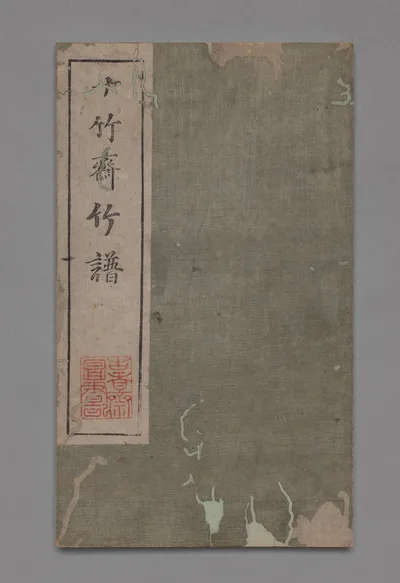 十竹齋竹譜